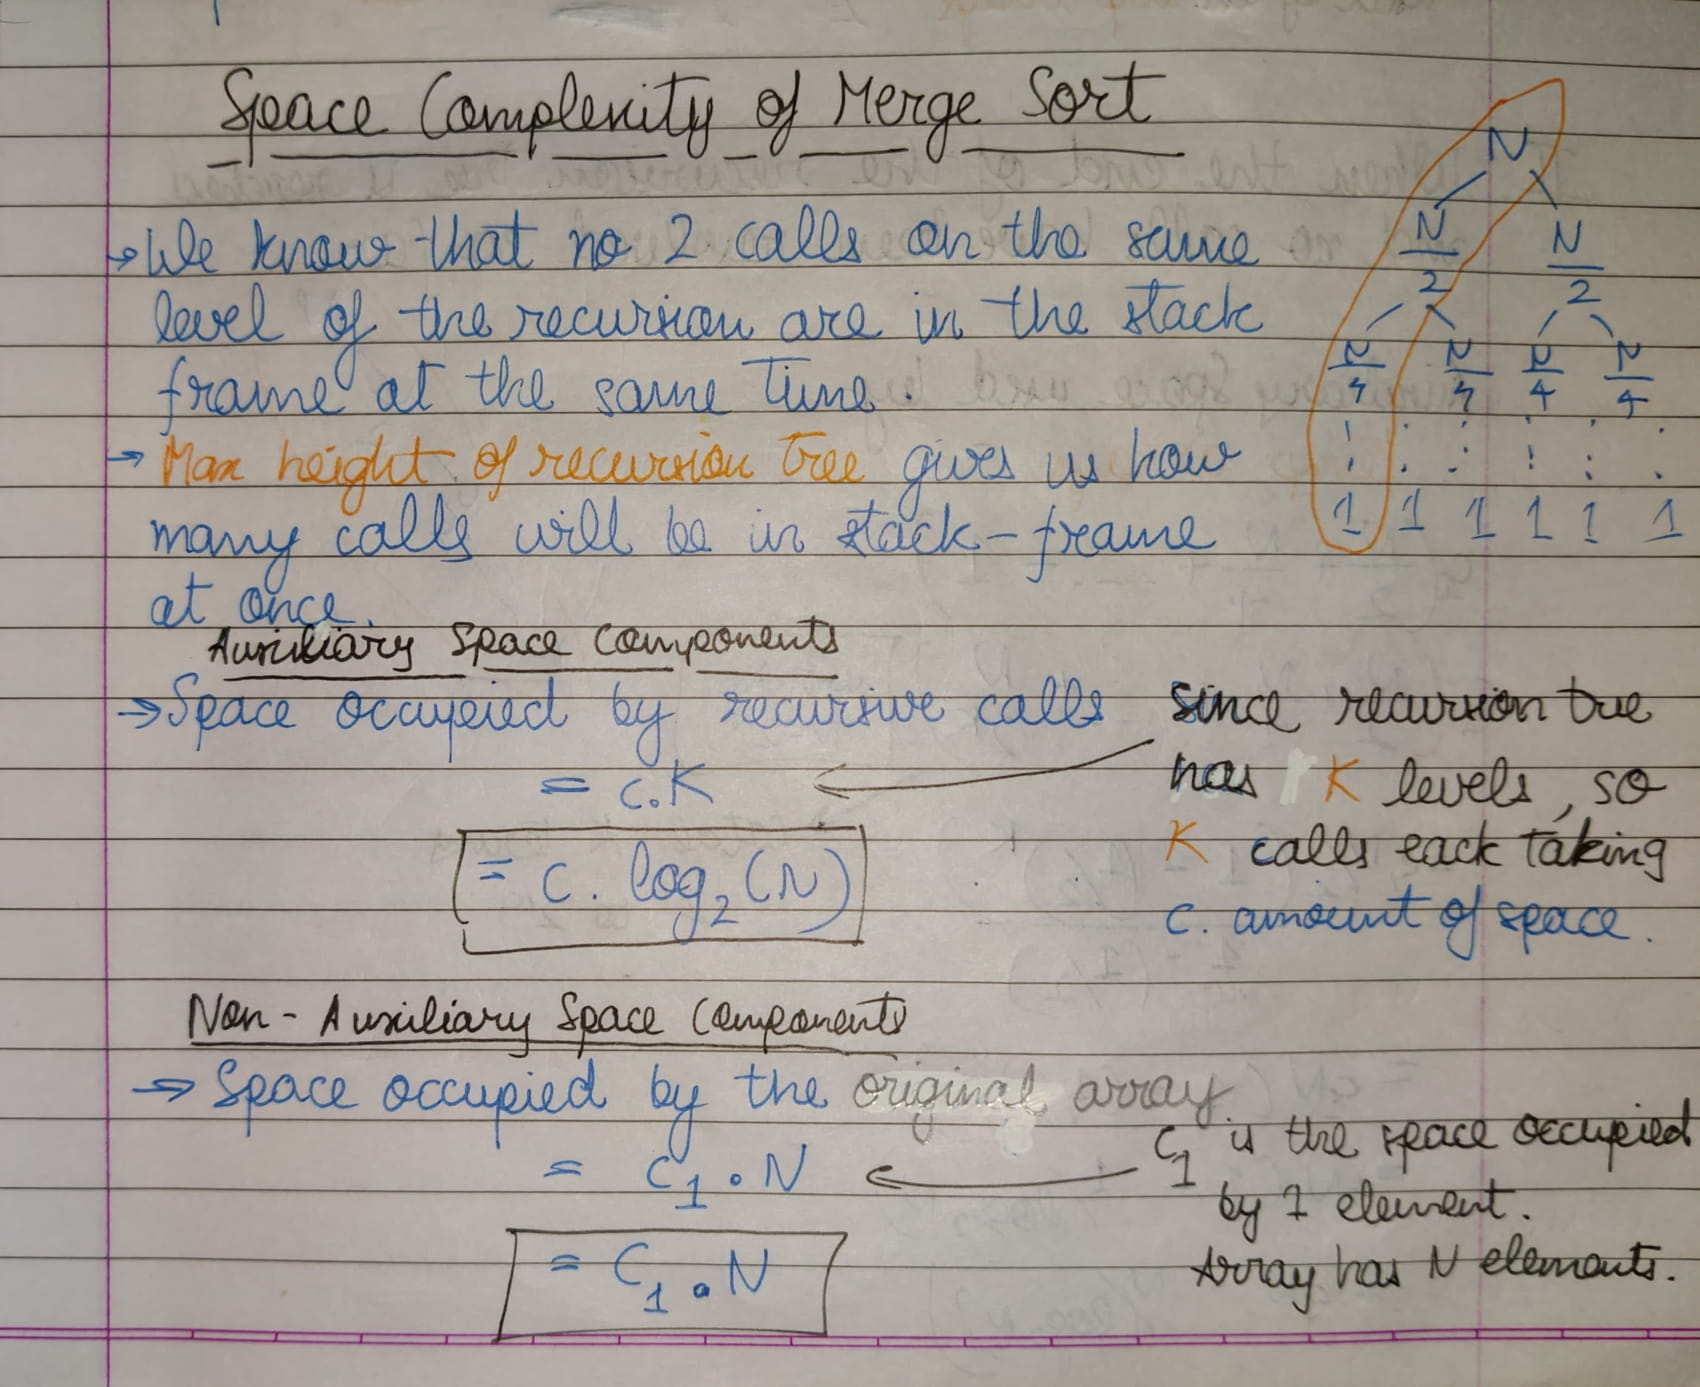 Space Complexity of Merge Sort
→ We know that no 2 calls on the same
level of the recursion are in the stack
frame at the same time.
→ Max height of recursion tree gives us how
many calls will be in stack-frame
at once.
N
N/2 N/2
N/4 N/4 N/4 N/4
1 1 1 1 1 1
Auxiliary Space Components
→ Space occupied by recursive calls
= c.K
= c. log₂(N)
Since recursion tree
has K levels, so
K calls each taking
c. amount of space.
Non-Auxiliary Space Components
→ Space occupied by the original array
= c₁ . N
= C₁ . N
C₁ is the space occupied
by 1 element.
Array has N elements.